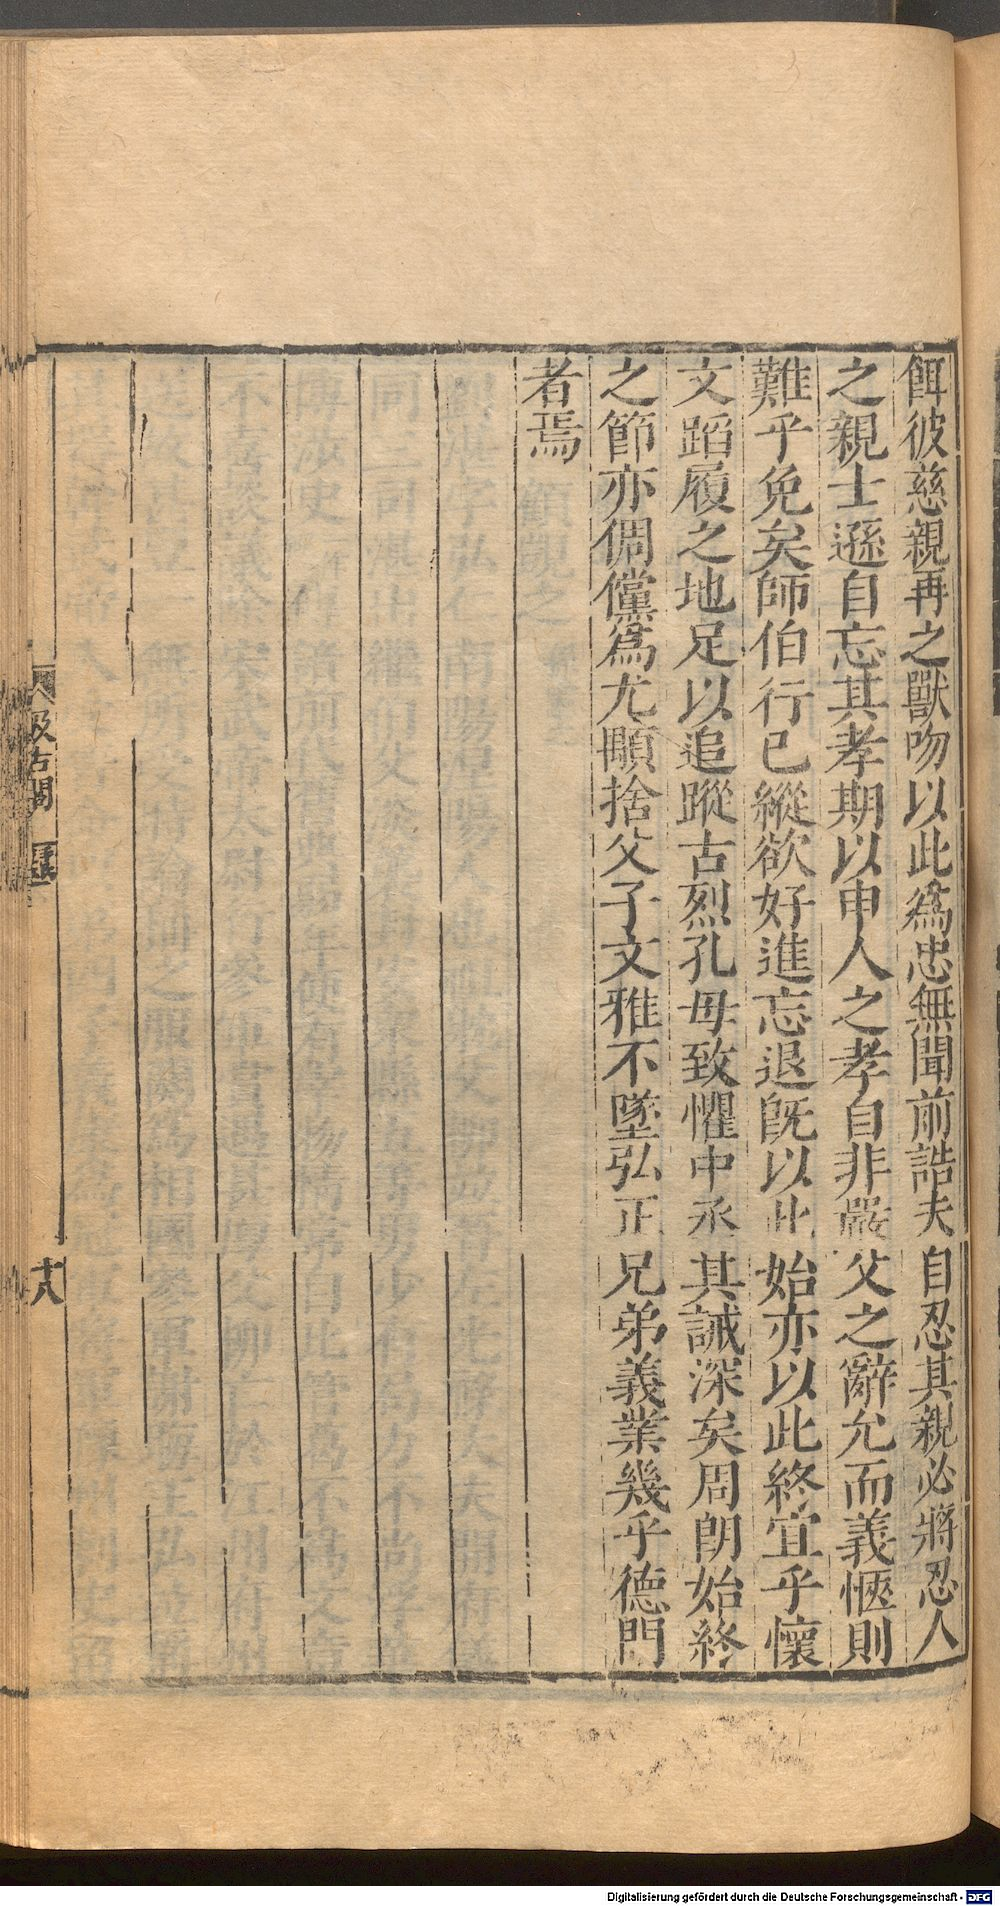 餌彼慈親再之獸吻以此爲忠無聞前誥夫自忍其親必將忍人
之親士遜自忘其孝期以申人之孝自非嚴父之辭允而義愜則
難乎免矣師伯行已縱欲好進忘退旣以此始亦以此終宜乎懷
文蹈履之地足以追蹤古烈孔母致懼中丞其誡深矣周朗始終
之節亦倜儻爲尤顒捨父子文雅不墜弘正兄弟義業幾乎德門
者焉
汲古閣
十八
Digitalisierung gefördert durch die Deutsche Forschungsgemeinschaft - DFG